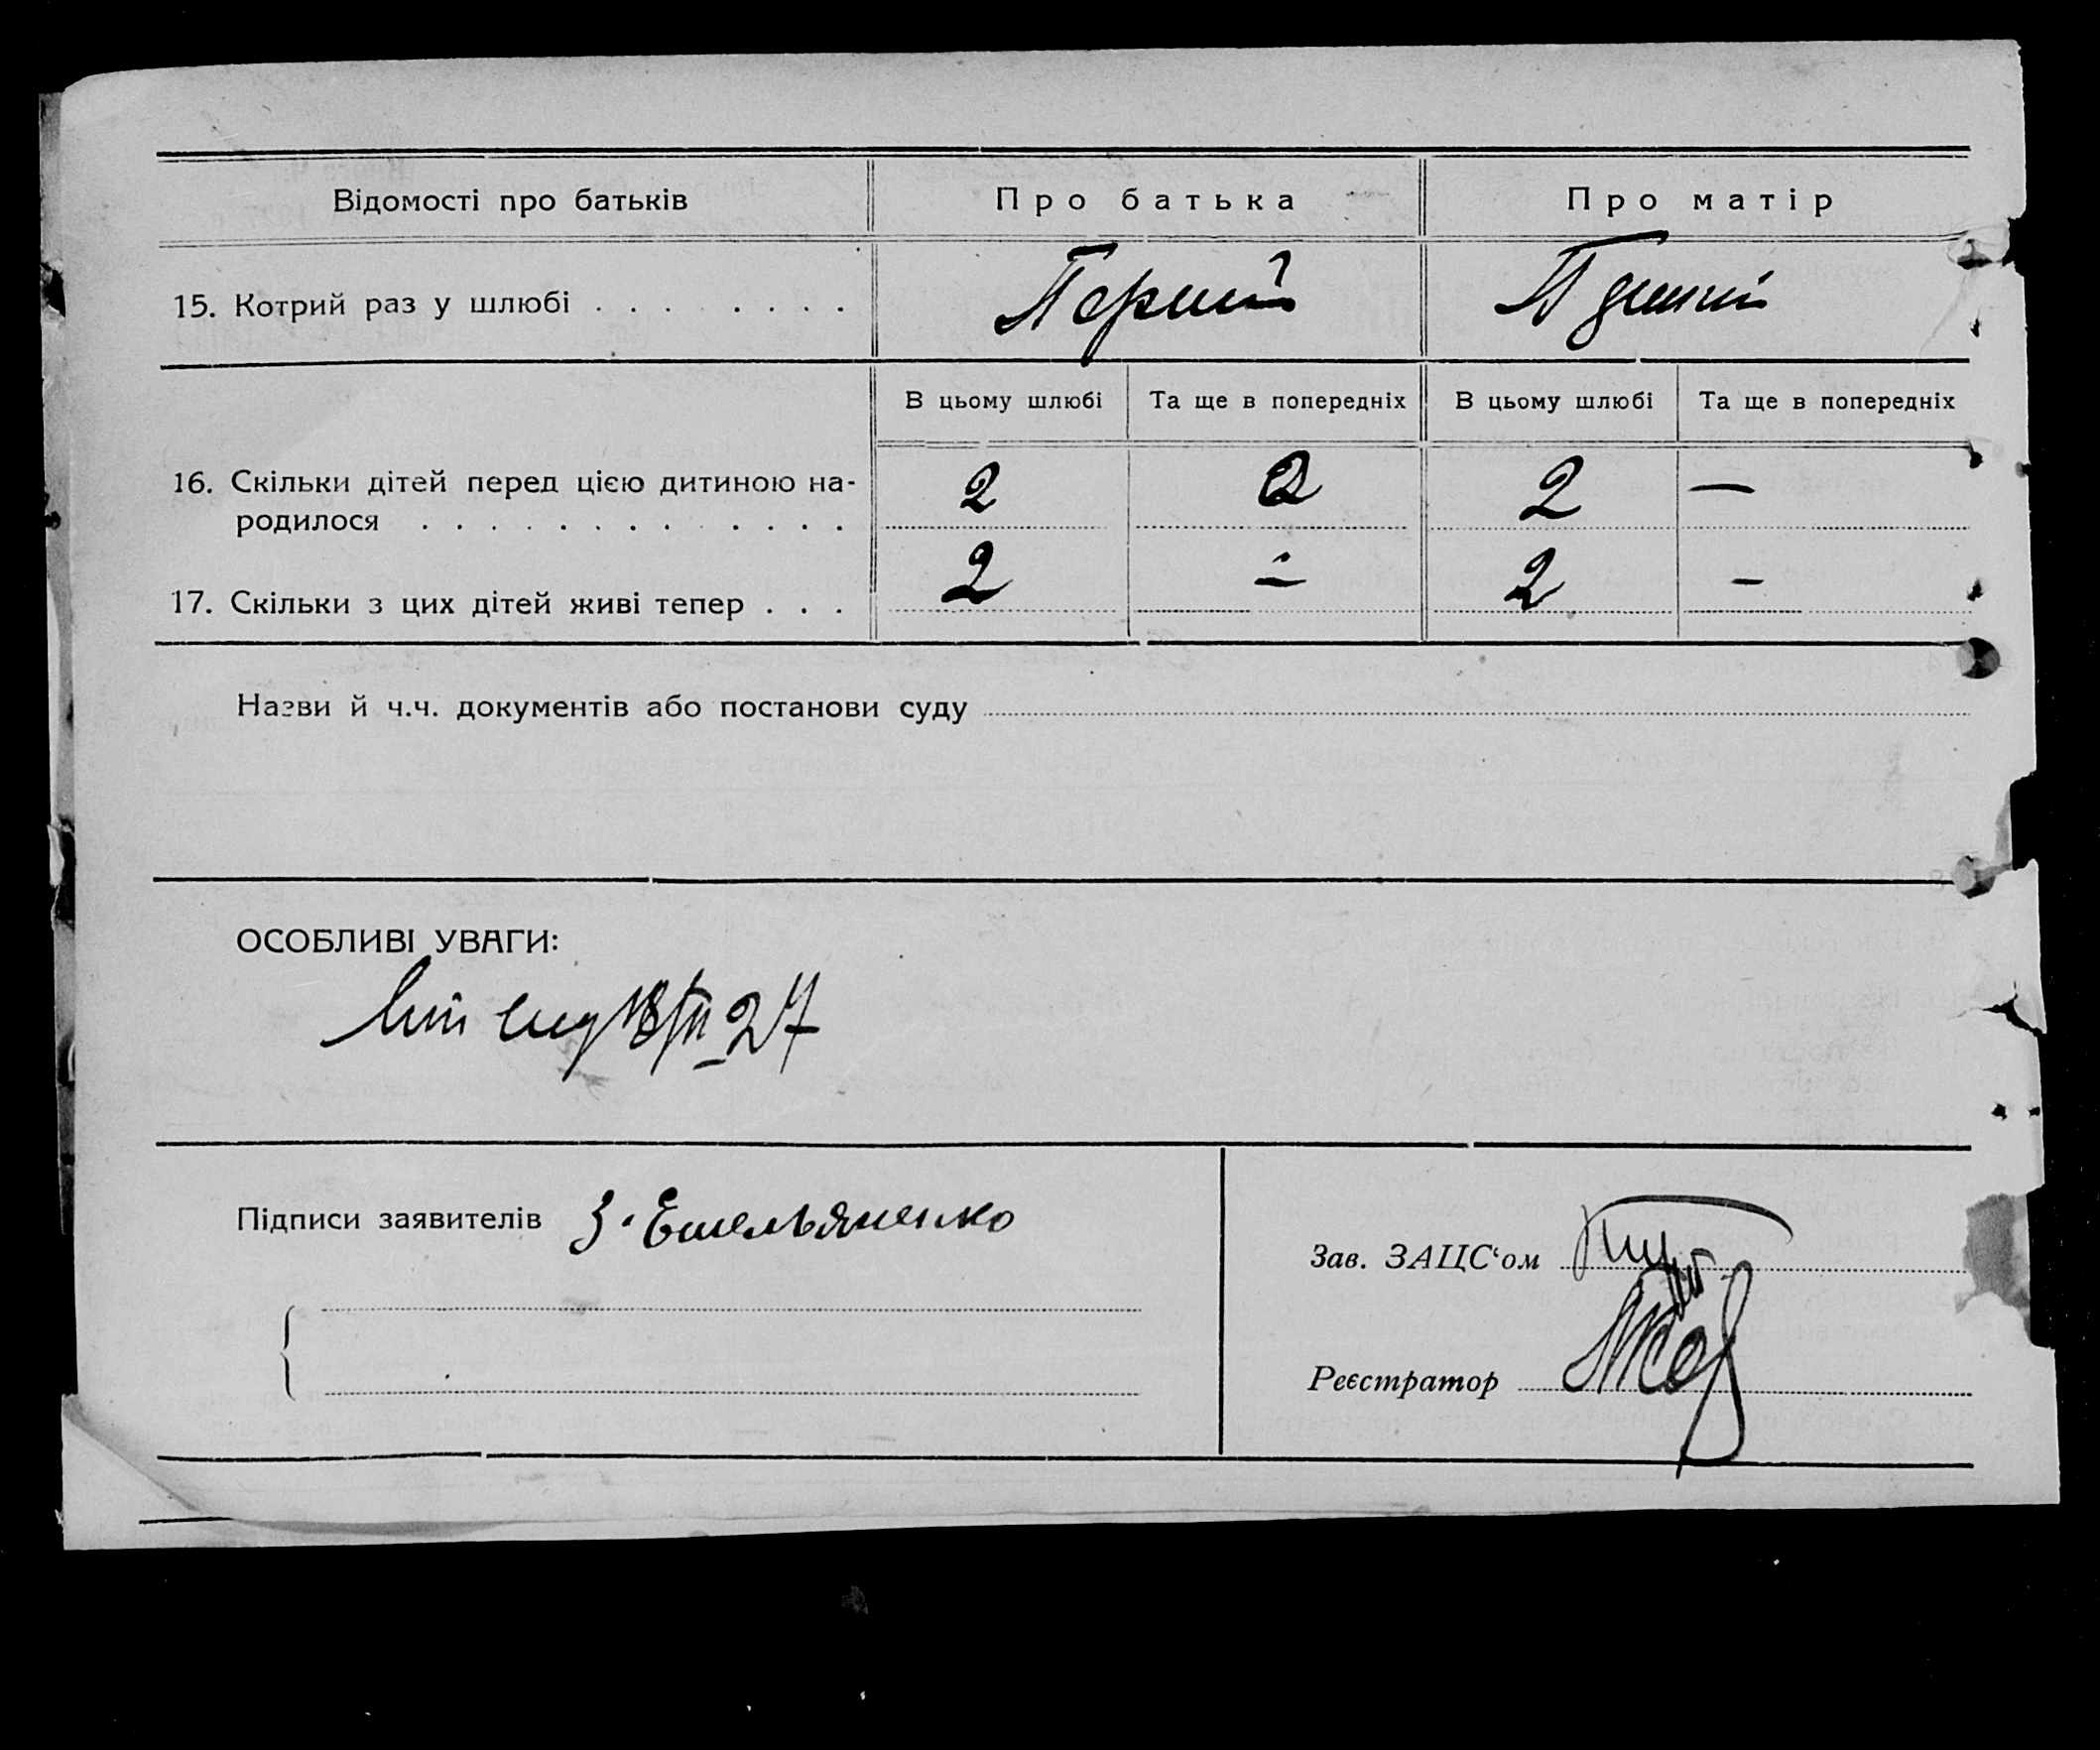 Відомості про батьків Про батька Про матір
15. Котрий раз у шлюбі . . . . . . . . Перший
В цьому шлюбі Та ще в попередніх В цьому шлюбі Та ще в попередніх
16. Скільки дітей перед цією дитиною на-
родилося . . . . . . . . . . . . . 2 2 2 —
17. Скільки з цих дітей живі тепер . . . 2 – 2 –
Назви й ч.ч. документів або постанови суду
ОСОБЛИВІ УВАГИ:
27
Підписи заявителів З. Емельяненко
Зав. ЗАЦС‘ом
Реєстратор